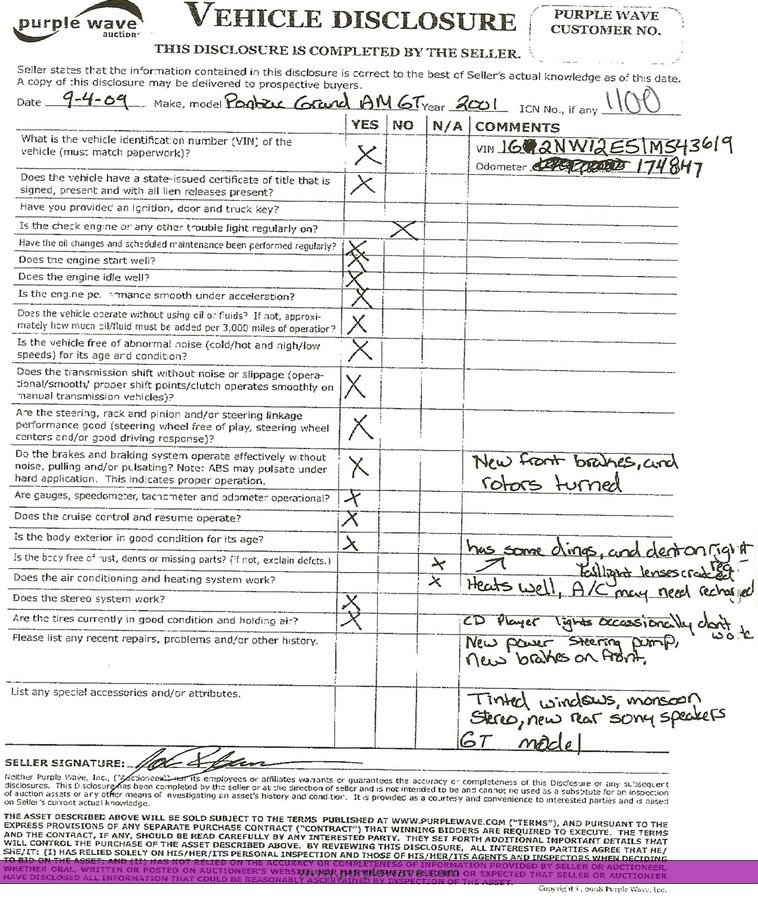 purple wave
auction
VEHICLE DISCLOSURE
THIS DISCLOSURE IS COMPLETED BY THE SELLER.
PURPLE WAVE
CUSTOMER NO.
Seller states that the information contained in this disclosure is correct to the best of Seller's actual knowledge as of this date.
A copy of this disclosure may be delivered to prospective buyers.
Date 9-4-09 Make, model Pontiac Grand AM GT Year 2001 ICN No., if any 1100
YES NO N/A COMMENTS
What is the vehicle identification number (VIN) of the
vehicle (must match paperwork)?
X
VIN 1G 2NW12E51M543619
Odometer 174847
Does the vehicle have a state-issued certificate of title that is
signed, present and with all lien releases present?
X
Have you provided an ignition, door and truck key?
Is the check engine or any other trouble light regularly on? X
Have the oil changes and scheduled maintenance been performed regularly? X
Does the engine start well? X
Does the engine idle well? X
Is the engine pe mance smooth under acceleration? X
Does the vehicle operate without using oil or fluids? If not, approxi-
mately how much oil/fluid must be added per 3,000 miles of operation?
X
Is the vehicle free of abnormal noise (cold/hot and high/low
speeds) for its age and condition?
X
Does the transmission shift without noise or slippage (opera-
tional/smooth/ proper shift points/clutch operates smoothly on
manual transmission vehicles)?
X
Are the steering, rack and pinion and/or steering linkage
performance good (steering wheel free of play, steering wheel
centers and/or good driving response)?
X
Do the brakes and braking system operate effectively without
noise, pulling and/or pulsating? Note: ABS may pulsate under
hard application. This indicates proper operation.
X
New front brakes, and
rotors turned
Are gauges, speedometer, tachometer and odometer operational? X
Does the cruise control and resume operate? X
Is the body exterior in good condition for its age? X
has some dings, and dent on right
Is the body free of rust, dents or missing parts? (If not, explain defects.) X
taillight lenses cracked
Does the air conditioning and heating system work? X Heats well, A/C may need recharged
Does the stereo system work? X
Are the tires currently in good condition and holding air? X CD Player lights occassionally dont
work
Please list any recent repairs, problems and/or other history.
New power steering pump,
new brakes on front.
List any special accessories and/or attributes.
Tinted windows, monsoon
Stereo, new rear sony speakers
GT model
SELLER SIGNATURE:
Neither Purple Wave, Inc., ("Auctioneer") nor its employees or affiliates warrants or guarantees the accuracy or completeness of this Disclosure or any subsequent
disclosures. This Disclosure has been completed by the seller or at the direction of seller and is not intended to be and cannot be used as a substitute for an inspection
of auction assets or any other means of investigating an asset's history and condition. It is provided as a courtesy and convenience to interested parties and is based
on Seller's current actual knowledge.
THE ASSET DESCRIBED ABOVE WILL BE SOLD SUBJECT TO THE TERMS PUBLISHED AT WWW.PURPLEWAVE.COM ("TERMS"), AND PURSUANT TO THE
EXPRESS PROVISIONS OF ANY SEPARATE PURCHASE CONTRACT ("CONTRACT") THAT WINNING BIDDERS ARE REQUIRED TO EXECUTE. THE TERMS
AND THE CONTRACT, IF ANY, SHOULD BE READ CAREFULLY BY ANY INTERESTED PARTY. THEY SET FORTH ADDITIONAL IMPORTANT DETAILS THAT
WILL CONTROL THE PURCHASE OF THE ASSET DESCRIBED ABOVE. BY REVIEWING THIS DISCLOSURE, ALL INTERESTED PARTIES AGREE THAT HE/
SHE/IT: (I) HAS RELIED SOLELY ON HIS/HER/ITS PERSONAL INSPECTION AND THOSE OF HIS/HER/ITS AGENTS AND INSPECTORS WHEN DECIDING
TO BID ON THE ASSET; AND (II) HAS NOT RELIED ON THE ACCURACY OR COMPLETENESS OF INFORMATION PROVIDED BY SELLER OR AUCTIONEER,
WHETHER ORAL, WRITTEN OR POSTED ON AUCTIONEER'S OR EXPECTED THAT SELLER OR AUCTIONEER
HAVE DISCLOSED ALL INFORMATION THAT COULD BE REASONABLY ASCERTAINED BY INSPECTION OF THE ASSET.
www.purplewave.com
Copyright © 2008 Purple Wave, Inc.